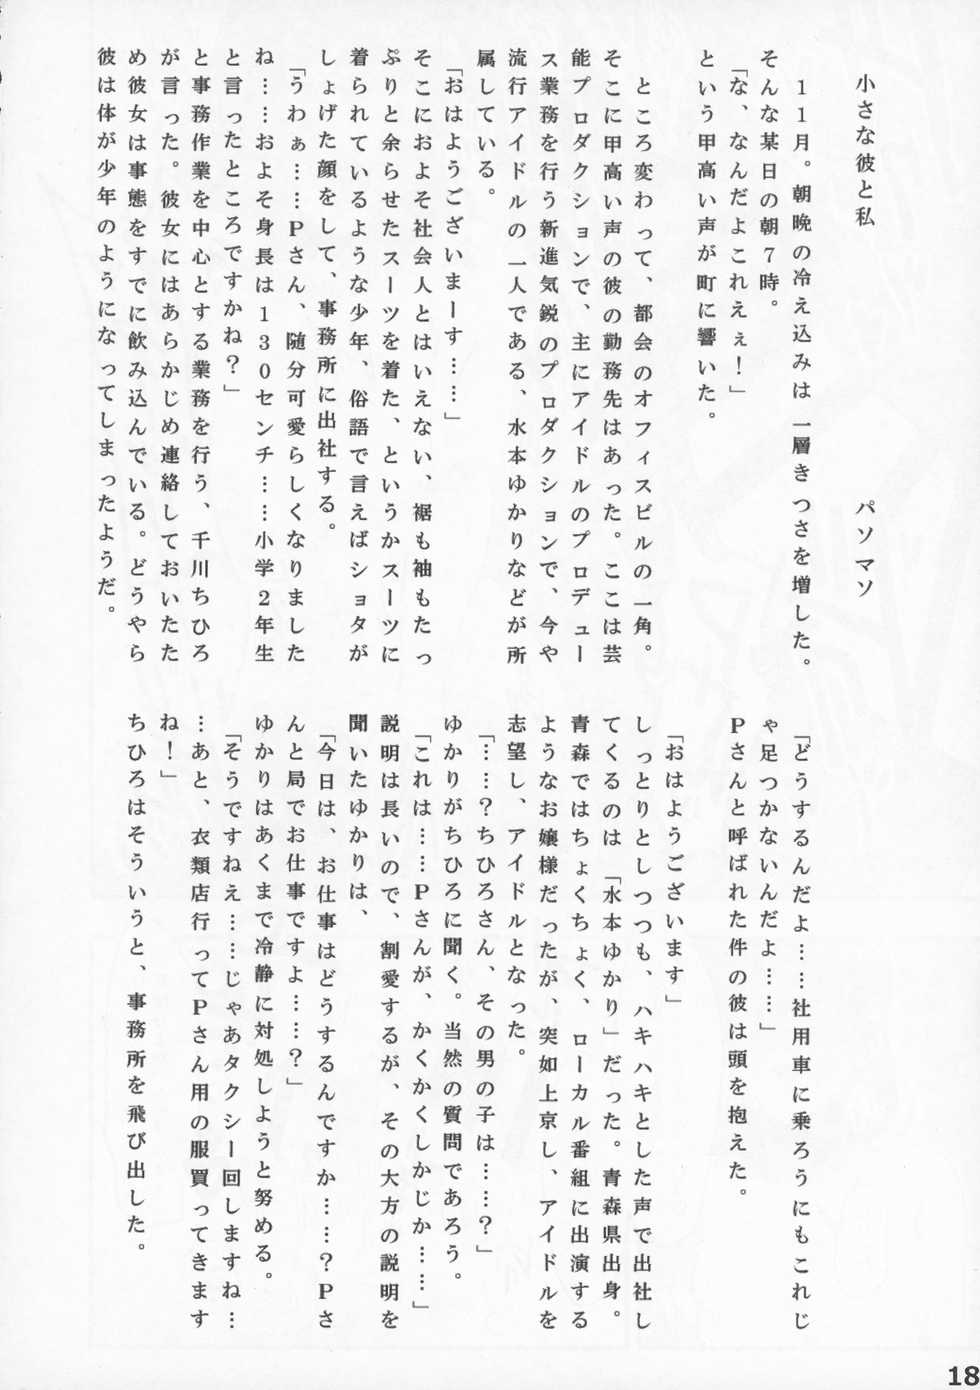 小さな彼と私
パソマソ
11月。朝晩の冷え込みは一層きつさを増した。
そんな某日の朝7時。
「な、なんだよこれえぇ!」
という甲高い声が町に響いた。
ところ変わって、都会のオフィスビルの一角。
そこに甲高い声の彼の勤務先はあった。ここは芸
能プロダクションで、主にアイドルのプロデュー
ス業務を行う新進気鋭のプロダクションで、今や
流行アイドルの一人である、水本ゆかりなどが所
属している。
「おはようございまーす……」
そこにおよそ社会人とはいえない、裾も袖もたっ
ぷりと余らせたスーツを着た、というかスーツに
着られているような少年、俗語で言えばショタが
しょげた顔をして、事務所に出社する。
「うわぁ……Pさん、随分可愛らしくなりました
ね……およそ身長は130センチ……小学2年生
と言ったところですかね?」
と事務作業を中心とする業務を行う、千川ちひろ
が言った。彼女にはあらかじめ連絡しておいたた
め彼女は事態をすでに飲み込んでいる。どうやら
彼は体が少年のようになってしまったようだ。
「どうするんだよ……社用車に乗ろうにもこれじ
ゃ足つかないんだよ……」
Pさんと呼ばれた件の彼は頭を抱えた。
「おはようございます」
しっとりとしつつも、ハキハキとした声で出社し
てくるのは「水本ゆかり」だった。青森県出身。
青森ではちょくちょく、ローカル番組に出演する
ようなお嬢様だったが、突如上京し、アイドルを
志望し、アイドルとなった。
「……?ちひろさん、その男の子は……?」
ゆかりがちひろに聞く。当然の質問であろう。
「これは……Pさんが、かくかくしかじか……」
説明は長いので、割愛するが、その大方の説明を
聞いたゆかりは、
「今日は、お仕事はどうするんですか……?Pさ
んと局でお仕事ですよ……?」
ゆかりはあくまで冷静に対処しようと努める。
「そうですねえ……じゃあタクシー回しますね…
…あと、衣類店行ってPさん用の服買ってきます
ね!」
ちひろはそういうと、事務所を飛び出した。
18